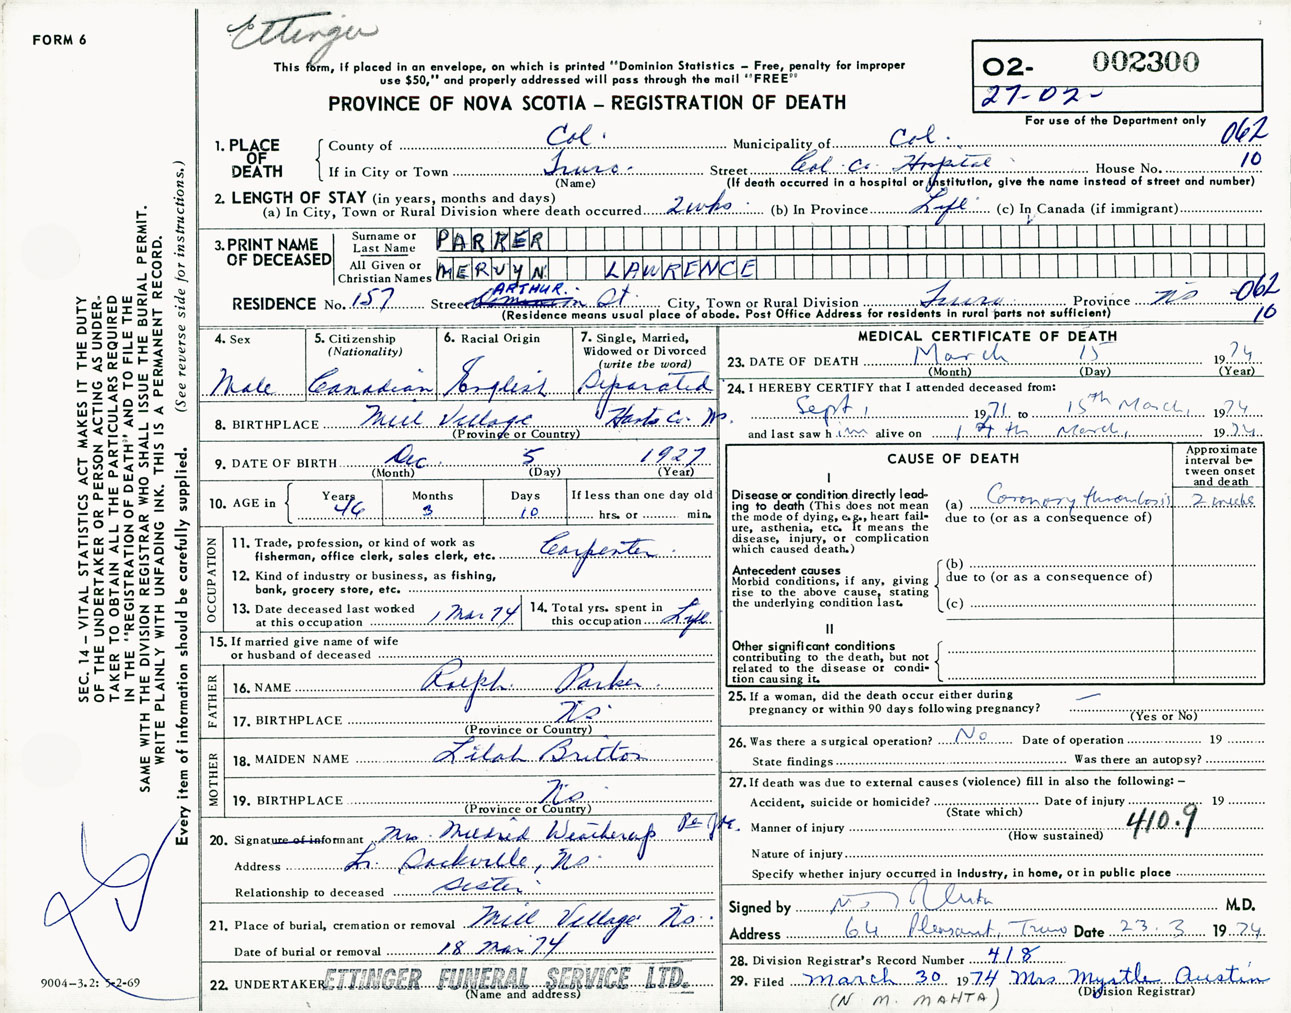 FORM 6
Ettinger
This form, if placed in an envelope, on which is printed "Dominion Statistics – Free, penalty for improper
use $50," and properly addressed will pass through the mail "FREE"
PROVINCE OF NOVA SCOTIA – REGISTRATION OF DEATH
02- 002300
27-02-
For use of the Department only
062
10
1. PLACE OF DEATH
County of Col. Municipality of Col.
If in City or Town Truro. Street Col. Co. Hospital House No.
(Name) (If death occurred in a hospital or institution, give the name instead of street and number)
2. LENGTH OF STAY (in years, months and days)
(a) In City, Town or Rural Division where death occurred 2 wks (b) In Province Life (c) In Canada (if immigrant)
3. PRINT NAME OF DECEASED
Surname or Last Name PARKER
All Given or Christian Names MERVYN LAWRENCE
ARTHUR.
RESIDENCE No. 157 Street St. City, Town or Rural Division Truro Province NS 062
(Residence means usual place of abode. Post Office Address for residents in rural parts not sufficient) 10
4. Sex
Male
5. Citizenship
(Nationality)
Canadian
6. Racial Origin
English
7. Single, Married,
Widowed or Divorced
(write the word)
Separated
8. BIRTHPLACE Mill Village Hants Co. Ns.
(Province or Country)
9. DATE OF BIRTH Dec. 5 1927
(Month) (Day) (Year)
10. AGE in Years Months Days If less than one day old
46 3 10 hrs. or min.
OCCUPATION
11. Trade, profession, or kind of work as
fisherman, office clerk, sales clerk, etc. Carpenter.
12. Kind of industry or business, as fishing,
bank, grocery store, etc.
13. Date deceased last worked
at this occupation 1 Mar 74
14. Total yrs. spent in
this occupation Life
15. If married give name of wife
or husband of deceased
FATHER
16. NAME Ralph Parker.
17. BIRTHPLACE Ns
(Province or Country)
MOTHER
18. MAIDEN NAME Lilah Britton
19. BIRTHPLACE Ns
(Province or Country)
20. Signature of informant Mrs. Mildred Weatherup
Address Lr. Sackville, Ns.
Relationship to deceased Sister
21. Place of burial, cremation or removal Mill Village Ns.
Date of burial or removal 18 Mar 74
22. UNDERTAKER ETTINGER FUNERAL SERVICE LTD.
(Name and address)
MEDICAL CERTIFICATE OF DEATH
23. DATE OF DEATH March 15 1974
(Month) (Day) (Year)
24. I HEREBY CERTIFY that I attended deceased from:
Sept, 1971 to 15th March, 1974
and last saw him alive on 14th March, 1974
CAUSE OF DEATH
Approximate
interval be-
tween onset
and death
I
Disease or condition directly lead-
ing to death (This does not mean
the mode of dying, e.g., heart fail-
ure, asthenia, etc. It means the
disease, injury, or complication
which caused death.)
(a) Coronary thrombosis 2 weeks
due to (or as a consequence of)
Antecedent causes
Morbid conditions, if any, giving
rise to the above cause, stating
the underlying condition last.
(b)
due to (or as a consequence of)
(c)
II
Other significant conditions
contributing to the death, but not
related to the disease or condi-
tion causing it.
25. If a woman, did the death occur either during
pregnancy or within 90 days following pregnancy? –
(Yes or No)
26. Was there a surgical operation? No Date of operation 19
State findings Was there an autopsy?
27. If death was due to external causes (violence) fill in also the following: –
Accident, suicide or homicide? Date of injury 19
(State which)
Manner of injury 410.9
(How sustained)
Nature of injury
Specify whether injury occurred in industry, in home, or in public place
Signed by M.D.
Address 64 Pleasant, Truro Date 23.3 1974
28. Division Registrar's Record Number 418
29. Filed March 30 1974 Mrs Myrtle Austin
(Division Registrar)
(N. M. MAHTA)
SEC. 14 – VITAL STATISTICS ACT MAKES IT THE DUTY
OF THE UNDERTAKER OR PERSON ACTING AS UNDER-
TAKER TO OBTAIN ALL THE PARTICULARS REQUIRED
IN THE "REGISTRATION OF DEATH" AND TO FILE THE
SAME WITH THE DIVISION REGISTRAR WHO SHALL ISSUE THE BURIAL PERMIT.
WRITE PLAINLY WITH UNFADING INK. THIS IS A PERMANENT RECORD.
Every item of information should be carefully supplied. (See reverse side for instructions.)
9004-3.2: 5-2-69